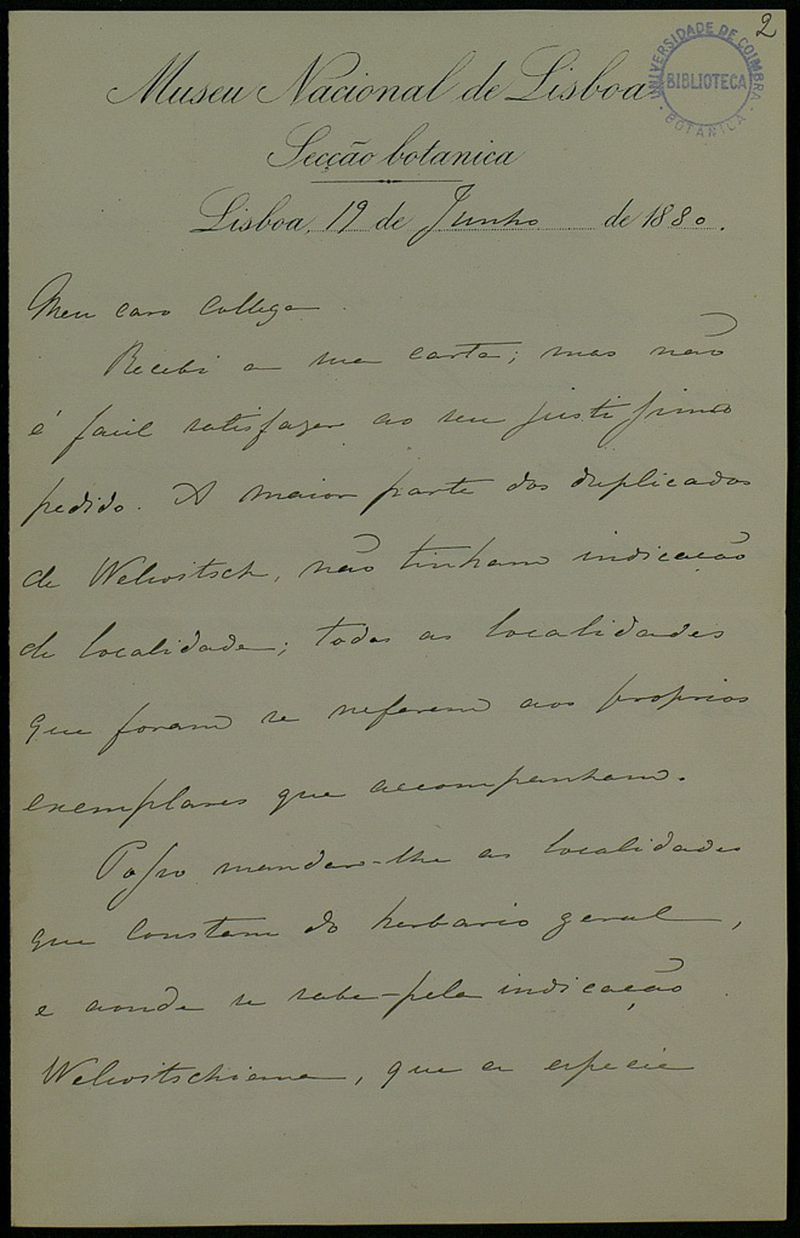 2
UNIVERSIDADE DE COIMBRA
BIBLIOTECA
BOTANICA
Museu Nacional de Lisboa
Secção botanica
Lisboa, 19 de Junho de 1880.
Meu caro Collega.
Recebi a sua carta; mas não
é facil satisfazer ao seu justissimo
pedido. A maior parte dos duplicados
de Welwitsch, não tinham indicação
de localidade; todas as localidades
que foram se referem aos proprios
exemplares que accompanham.
Posso mandar-lhe as localidades
que constam do herbario geral,
e aonde se sabe pela indicação
Welwitschiana, que a especie